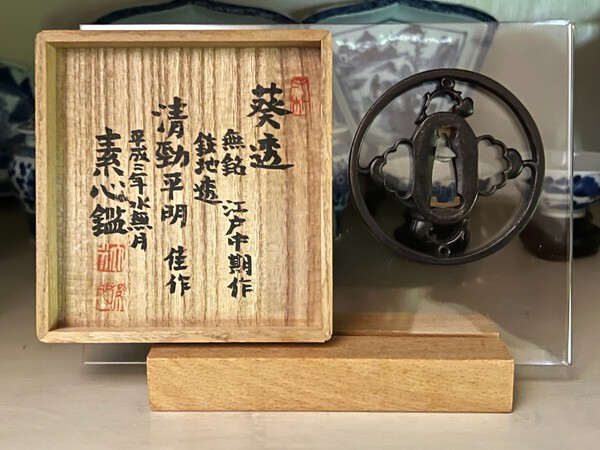 葵透
無銘 江戸中期作
鉄地透
清勁平明 佳作
平成三年水無月
素心鑑